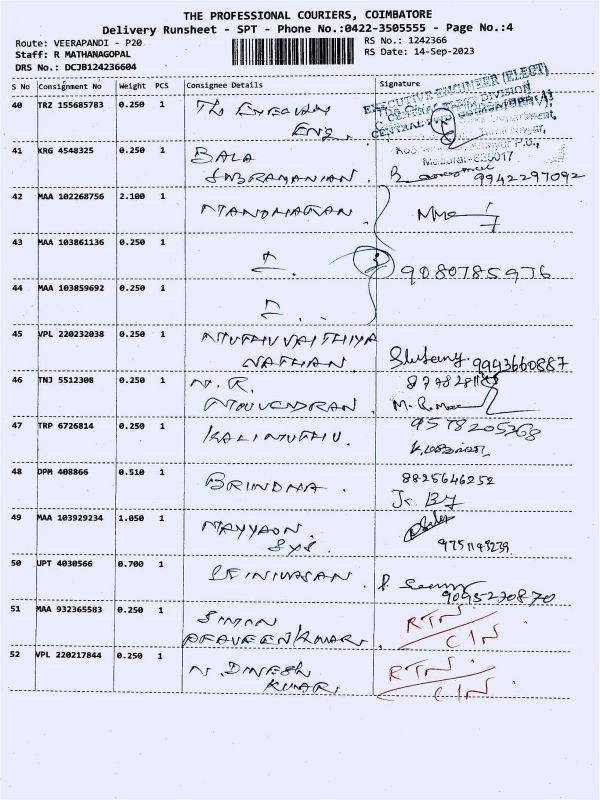 THE PROFESSIONAL COURIERS, COIMBATORE
Delivery Runsheet - SPT - Phone No.:0422-3505555 - Page No.:4
Route: VEERAPANDI - P20
RS No.: 1242366
Staff: R MATHANAGOPAL
RS Date: 14-Sep-2023
DRS No.: DCJB124236604
S No Consignment No Weight PCS Consignee Details Signature
40 TRZ 155685783 0.250 1 The Executive
Eng.
EXECUTIVE ENGINEER (ELECT)
DIVISION
625017
41 KRG 4548325 0.250 1 BALA
SUBRAMANIAN. 9942297092
42 MAA 102268756 2.100 1 MANOHARAN.
43 MAA 103861136 0.250 1 3 9080785976
44 MAA 103859692 0.250 1
45 VPL 220232038 0.250 1 MUTHUVAITHIYA
NATHAN. 9943660887
46 TNJ 5512308 0.250 1 N. R.
MOUVENDRAN.
47 TRP 6726814 0.250 1 KALIMUTHU. 9578205368
48 DPM 408866 0.510 1 BRINDHA. 8825646252
49 MAA 103929234 1.050 1 MAYYAON
SYS. 9751145239
50 UPT 4030566 0.700 1 SRINIVASAN. 9095270870
51 MAA 932365583 0.250 1 SIMON
PRAVEEN KUMAR. RTN.
CIN.
52 VPL 220217844 0.250 1 N. DINESH
KUMAR. RTN.
CIN.